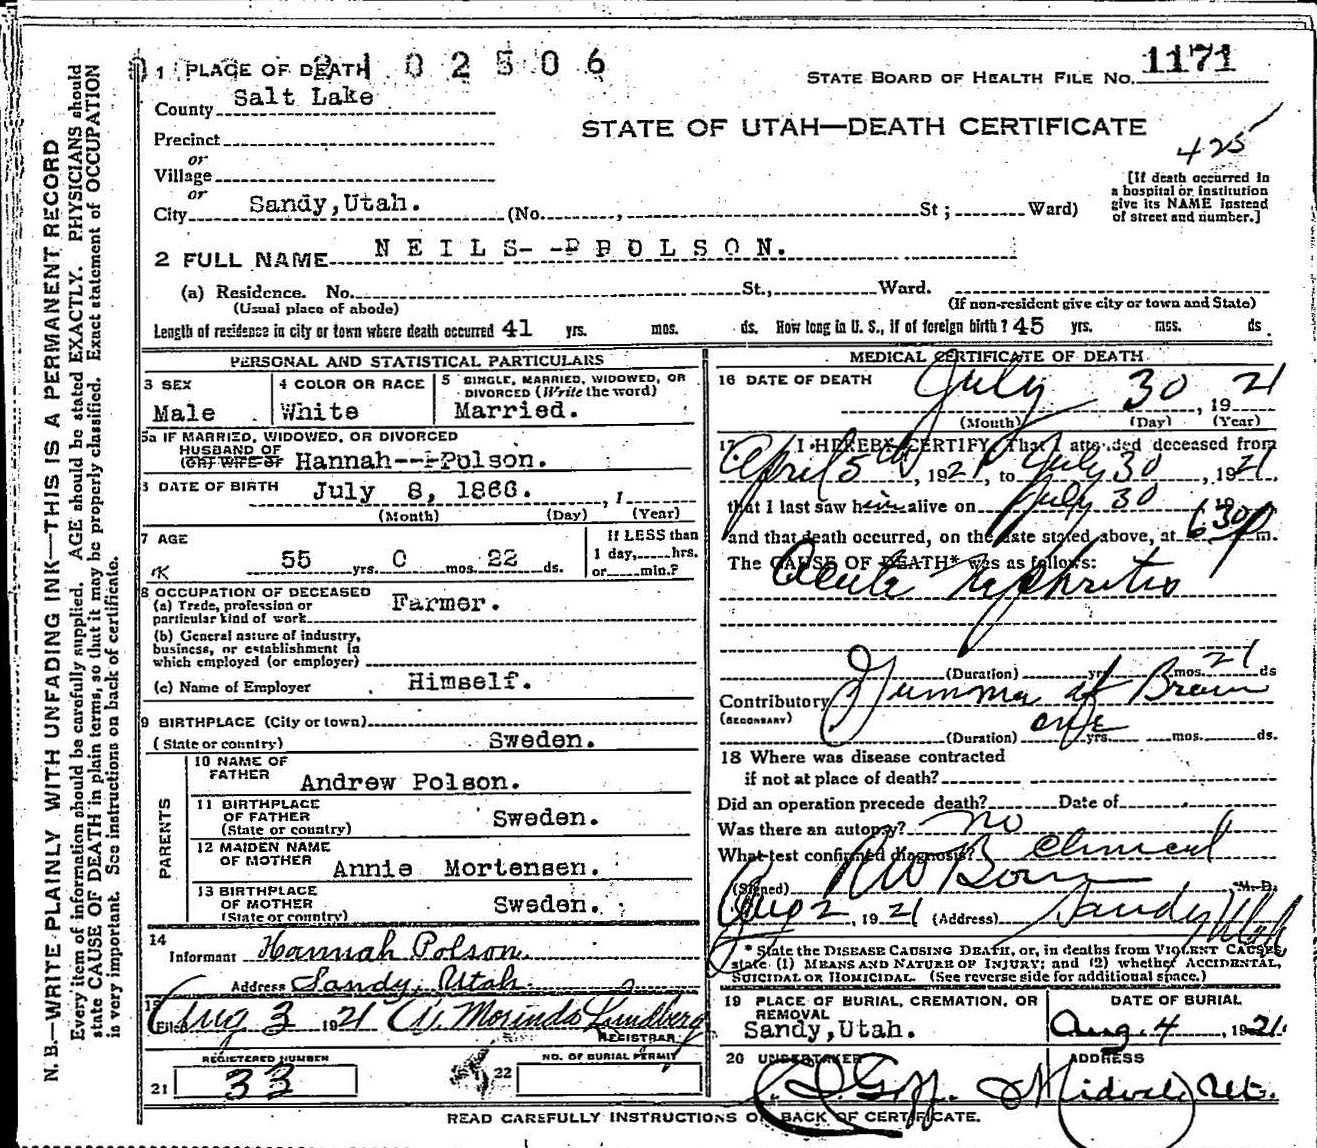 N. B.—WRITE PLAINLY WITH UNFADING INK—THIS IS A PERMANENT RECORD
Every item of information should be carefully supplied. AGE should be stated EXACTLY. PHYSICIANS should
state CAUSE OF DEATH in plain terms, so that it may be properly classified. Exact statement of OCCUPATION
is very important. See instructions on back of certificate.
02506
1 PLACE OF DEATH
STATE BOARD OF HEALTH FILE No. 1171
County Salt Lake
STATE OF UTAH—DEATH CERTIFICATE
425
Precinct
or
Village
or
City Sandy, Utah. (No. , St ; Ward)
[If death occurred in
a hospital or institution
give its NAME instead
of street and number.]
2 FULL NAME NEILS- -POLSON.
(a) Residence. No. St., Ward.
(Usual place of abode) (If non-resident give city or town and State)
Length of residence in city or town where death occurred 41 yrs. mos. ds. How long in U. S., if of foreign birth? 45 yrs. mos. ds.
PERSONAL AND STATISTICAL PARTICULARS
3 SEX
Male
4 COLOR OR RACE
White
5 SINGLE, MARRIED, WIDOWED, OR
DIVORCED (Write the word)
Married.
5a IF MARRIED, WIDOWED, OR DIVORCED
HUSBAND OF
(OR) WIFE OF Hannah---Polson.
6 DATE OF BIRTH July 8, 1866. , 1
(Month) (Day) (Year)
7 AGE
55 yrs. 0 mos. 22 ds.
If LESS than
1 day, hrs.
or min.?
8 OCCUPATION OF DECEASED
(a) Trade, profession or
particular kind of work Farmer.
(b) General nature of industry,
business, or establishment in
which employed (or employer)
(c) Name of Employer Himself.
9 BIRTHPLACE (City or town)
(State or country) Sweden.
PARENTS
10 NAME OF
FATHER Andrew Polson.
11 BIRTHPLACE
OF FATHER
(State or country) Sweden.
12 MAIDEN NAME
OF MOTHER Annie Mortensen.
13 BIRTHPLACE
OF MOTHER
(State or country) Sweden.
14
Informant Hannah Polson
Address Sandy, Utah
Filed Aug 3 1921 Morinda Lundberg
REGISTRAR
REGISTERED NUMBER
21 33
NO. OF BURIAL PERMIT
22
MEDICAL CERTIFICATE OF DEATH
16 DATE OF DEATH
July 30, 1921
(Month) (Day) (Year)
17 I HEREBY CERTIFY, That I attended deceased from
April 5th, 1921, to July 30, 1921
that I last saw him alive on July 30 19
and that death occurred, on the date stated above, at 6 30 p m.
The CAUSE OF DEATH* was as follows:
Acute Nephritis
(Duration) yrs. mos. 21 ds
Contributory Gumma of Brain
(SECONDARY)
(Duration) one yrs. mos. ds.
18 Where was disease contracted
if not at place of death?
Did an operation precede death? Date of
Was there an autopsy? no
What test confirmed diagnosis? Clinical
(Signed) M. D.
Aug 2, 1921 (Address) Sandy Utah
* State the DISEASE CAUSING DEATH, or, in deaths from VIOLENT CAUSES,
state (1) MEANS AND NATURE OF INJURY; and (2) whether ACCIDENTAL,
SUICIDAL OR HOMICIDAL. (See reverse side for additional space.)
19 PLACE OF BURIAL, CREMATION, OR
REMOVAL
Sandy, Utah.
DATE OF BURIAL
Aug. 4, 1921.
20 UNDERTAKER
Goff.
ADDRESS
Midvale, Ut.
READ CAREFULLY INSTRUCTIONS ON BACK OF CERTIFICATE.